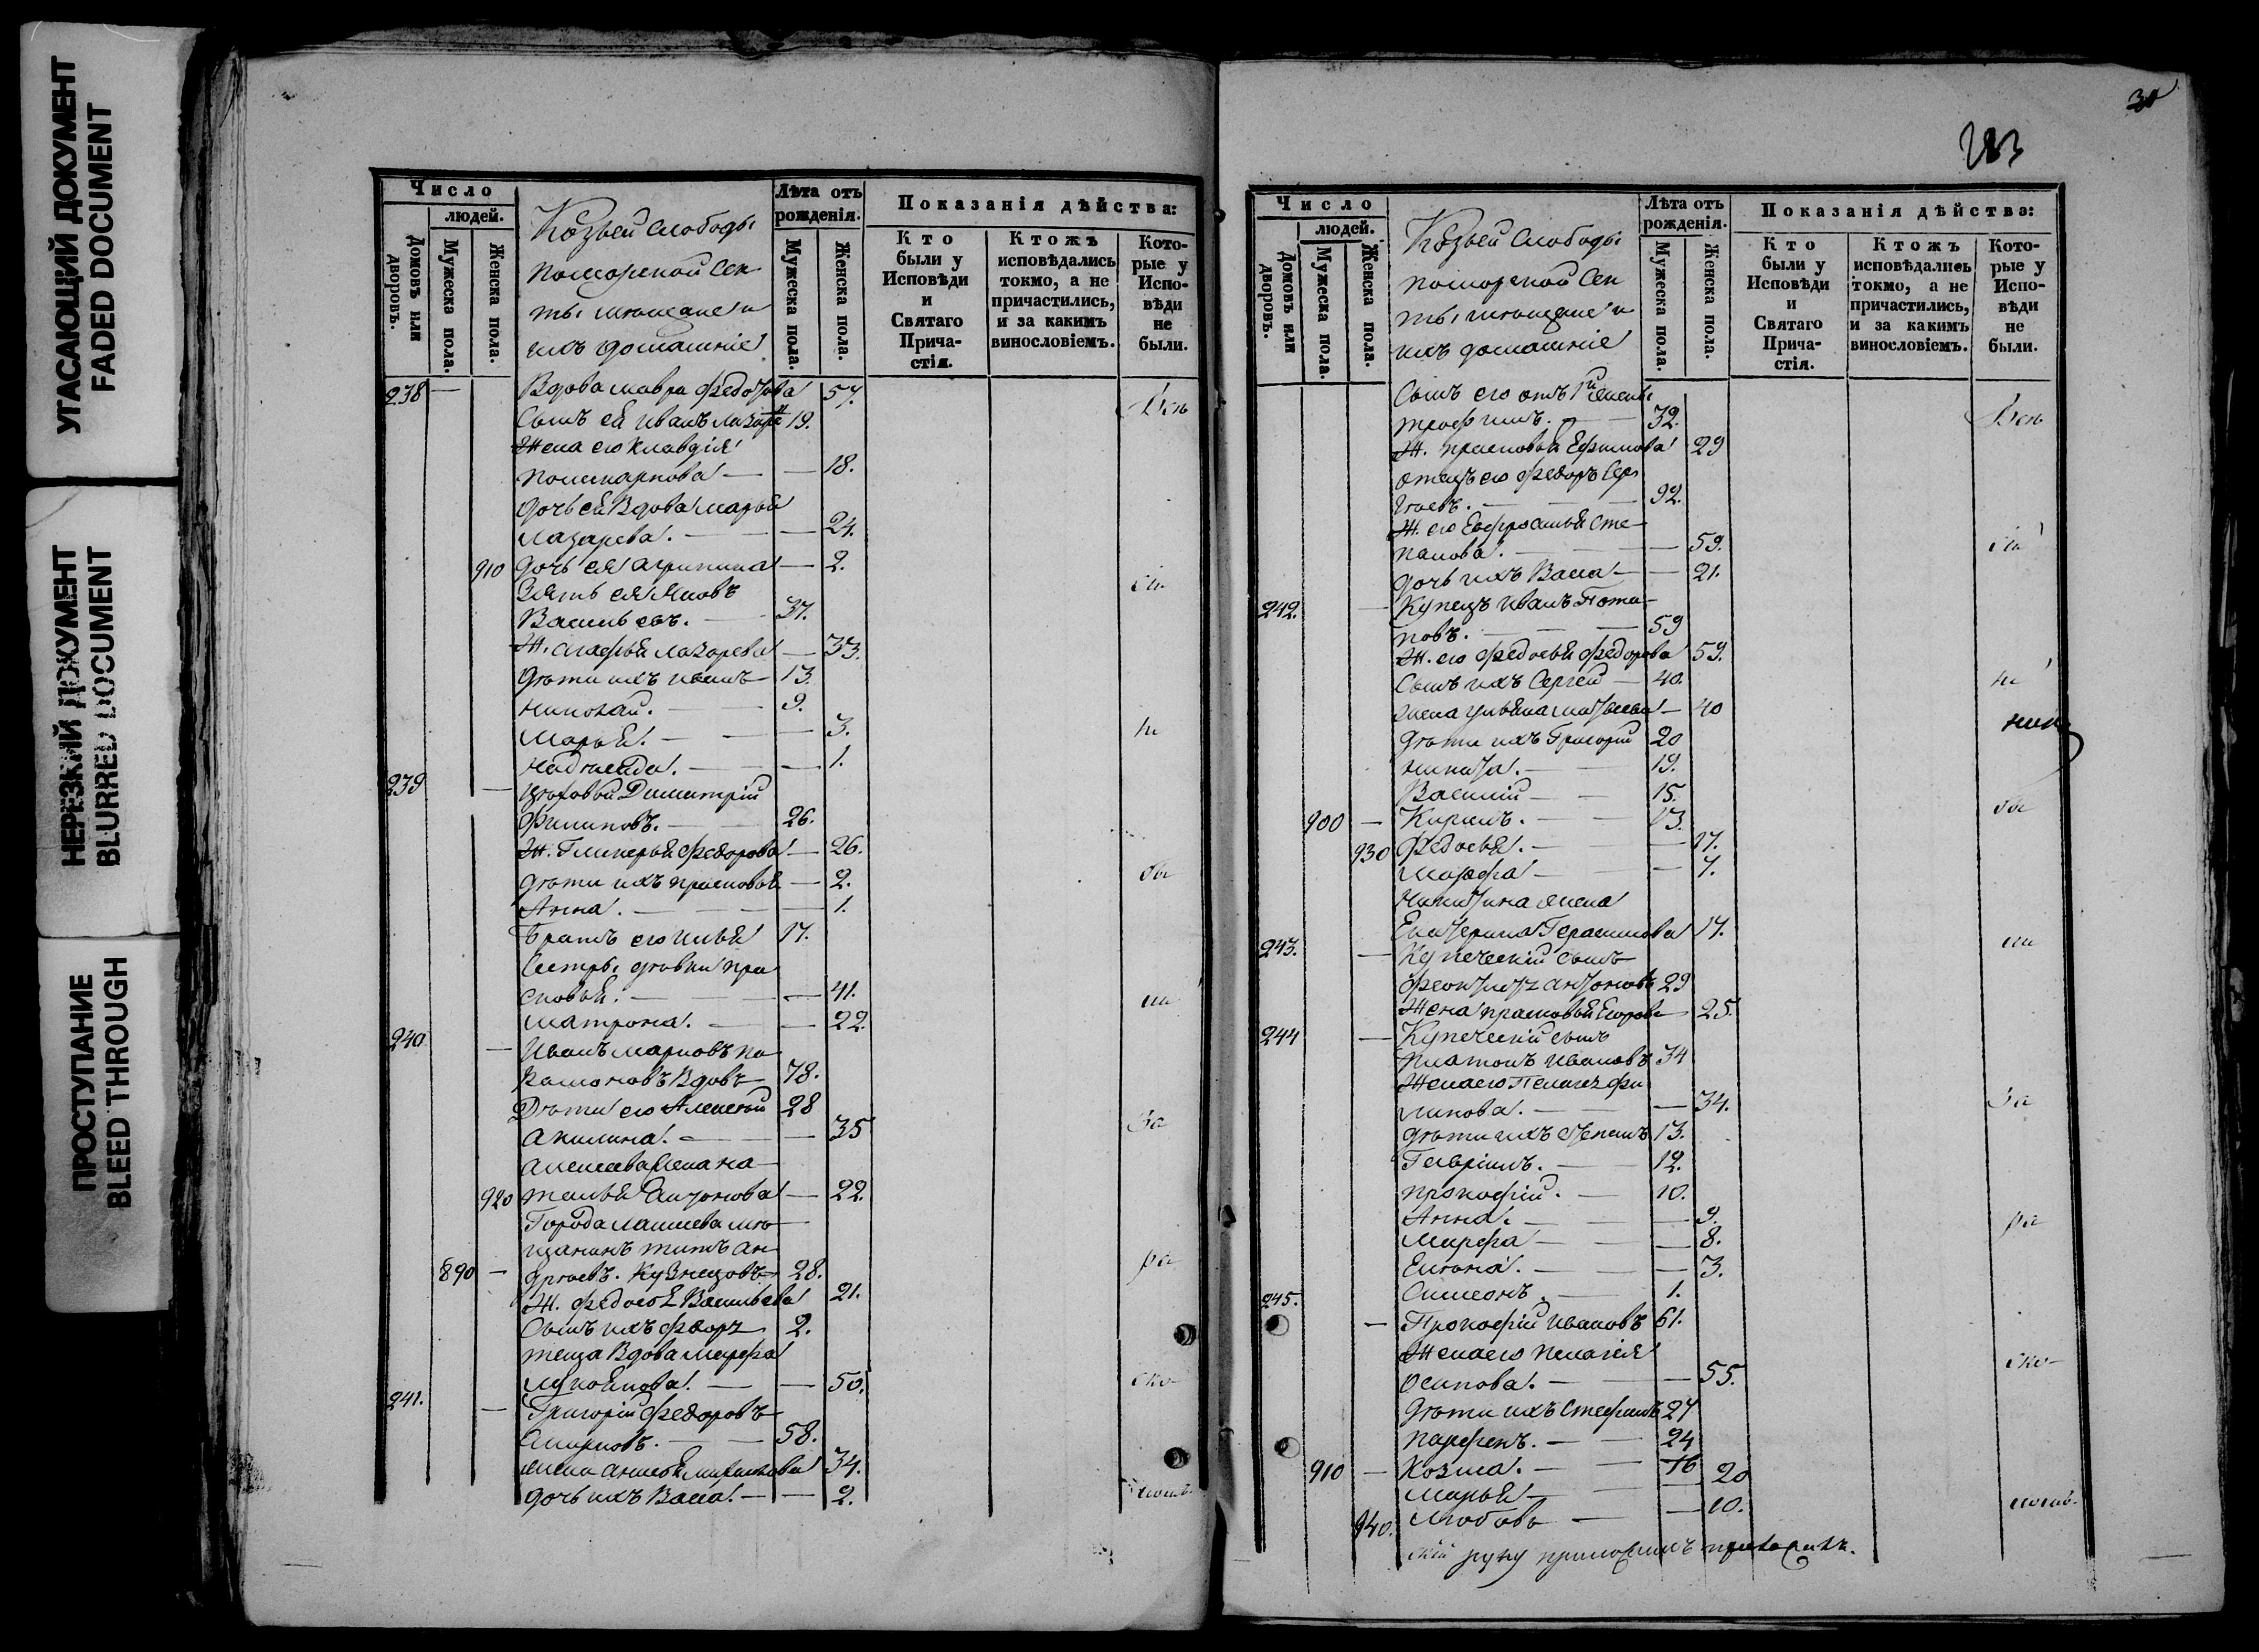 УГАСАЮЩИЙ ДОКУМЕНТ
FADED DOCUMENT
НЕРЕЗКИЙ ДОКУМЕНТ
BLURRED DOCUMENT
ПРОСТУПАНИЕ
BLEED THROUGH
Число
людей.
Домовъ или дворовъ.
Мужеска пола.
Женска пола.
Козьей Слободы
поморской сек
ты мющане и
ихъ домашніе
Лѣта отъ рожденія.
Мужеска пола.
Женска пола.
Показанія дѣйства:
Кто были у Исповѣди и Святаго Прича-стія.
Ктожъ исповѣдались токмо, а не причастились, и за какимъ винословіемъ.
Кото-рые у Испо-вѣди не были.
238 — Вдова Мавра Федотова 57.
Сынъ ея Иванъ 19.
Жена его Клавдія
Поликарпова — — 18.
Дочь ея Вдова Марья
Лазарева. — — 24.
910 Дочь ея Агрипина — 2.
Зять ея Яковъ
Васильевъ. — 37.
Ж. Агафья Лазарева — 33.
Дѣти ихъ Иванъ — 13.
Николай. — 9.
Марья. — — 3.
Надежда. — — 1.
239 — Цеховой Димитрій
Филиповъ. — 26.
Ж. Гликерья Федорова — 26.
Дѣти ихъ Прасковья — 2.
Анна. — — 1.
Братъ его Илья 17.
Сестры дѣвки Пра
сковья. — — 41.
Матрона. — — 22.
240 — Иванъ Марковъ
Вдовъ — 78.
Дѣти его Алексѣй 28
Акилина. — — 35
Алексѣева жена На
920 талья Антонова — 22.
Города Лаишева мѣ
щанинъ Титъ Ан
890 — дреевъ. Кузнецовъ — 28.
Ж. Федосья Васильева 21.
Сынъ ихъ Федоръ 2.
теща Вдова Марфа
Лукоянова. — — 50.
241. — Григорій Федоровъ
Смирновъ. — 58.
жена 34.
Дочь ихъ Васса. — — 2.
30
283
Число
людей.
Домовъ или дворовъ.
Мужеска пола.
Женска пола.
Козьей Слободы
поморской сек
ты мющане и
ихъ домашніе
Лѣта отъ рожденія.
Мужеска пола.
Женска пола.
Показанія дѣйства:
Кто были у Исповѣди и Святаго Прича-стія.
Ктожъ исповѣдались токмо, а не причастились, и за какимъ винословіемъ.
Кото-рые у Испо-вѣди не были.
Сынъ его отъ 1й жены
Трофимъ. — 32.
Ж. Прасковья Ефимова 29
отецъ его Федоръ Сер
гѣевъ. — 92.
Ж. его Евфросинья Сте
панова. — — 59.
Дочь ихъ Васса — — 21.
242. — Купецъ Иванъ Пота
повъ. — 59
Ж. его Федосья Федорова 59.
Сынъ ихъ Сергей — 40.
жена Ульяна Матвеева — 40
Дѣти ихъ Григорій 20
Никита. — 19.
Василій — 15.
900 — Кирилъ. — 13.
930 Федосья. — — 17.
Марфа — — 7.
Никитина жена
Екатерина Герасимова 17.
243. — Купеческій сынъ
Антоновъ 29
Жена Прасковья Егорова 25.
244 — Купеческій сынъ
Платонъ Ивановъ 34
Жена его Пелагея Фи
липова. — — 34.
Дѣти ихъ Степанъ 13.
Гавріилъ. — 12.
Прокофій. — 10.
Анна. — — 9.
Марфа — — 8.
Елена. — — 3.
Симеонъ. — 1.
245. — Прокофій Ивановъ 61.
Жена его Пелагія
Осипова. — — 55.
Дѣти ихъ Стефанъ 27
Парфенъ. — 24
910 — Козма. — 16
Марья — — 20
940. Любовь — — 10.
руку приложилъ